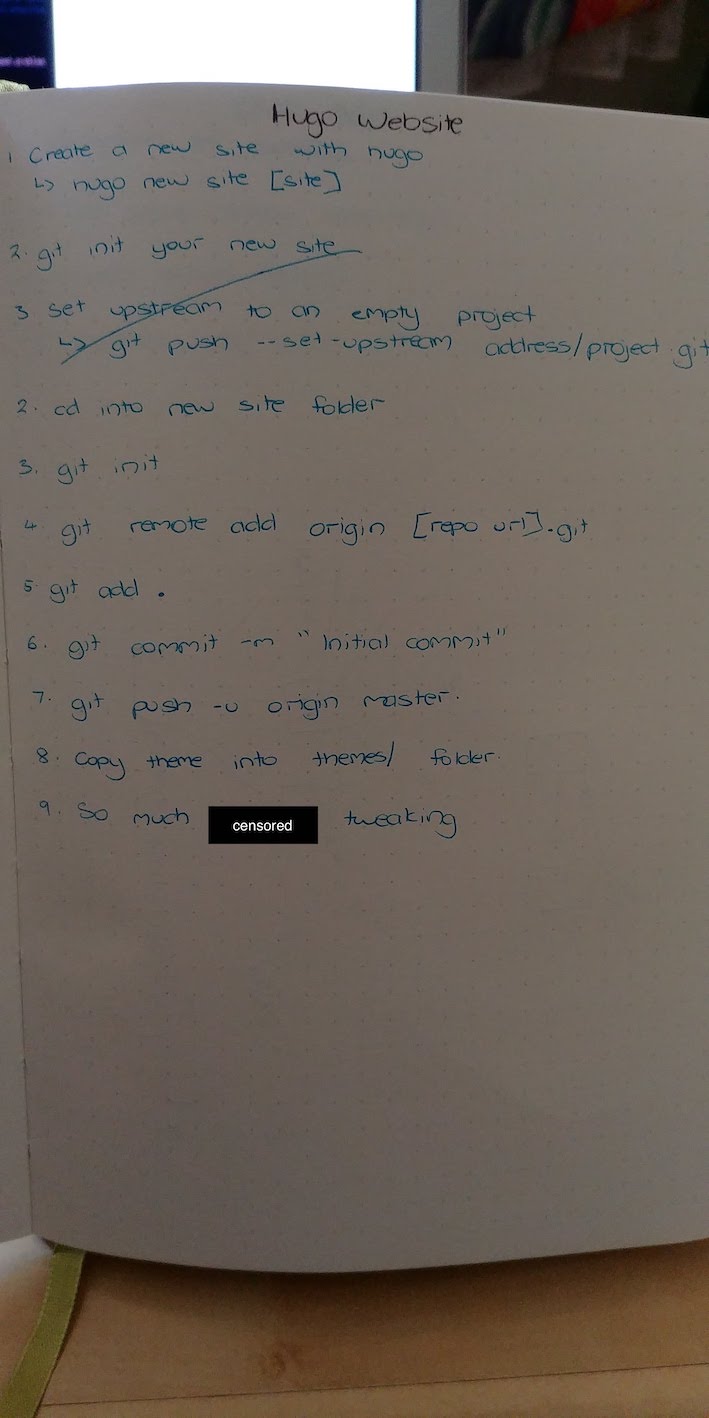 Hugo Website
1 Create a new site with hugo
↳ hugo new site [site]
2. git init your new site
3 set upstream to an empty project
↳ git push --set-upstream address/project.git
2. cd into new site folder
3. git init
4. git remote add origin [repo url].git
5. git add .
6. git commit -m "Initial commit"
7. git push -u origin master.
8. Copy theme into themes/ folder.
9. So much censored tweaking